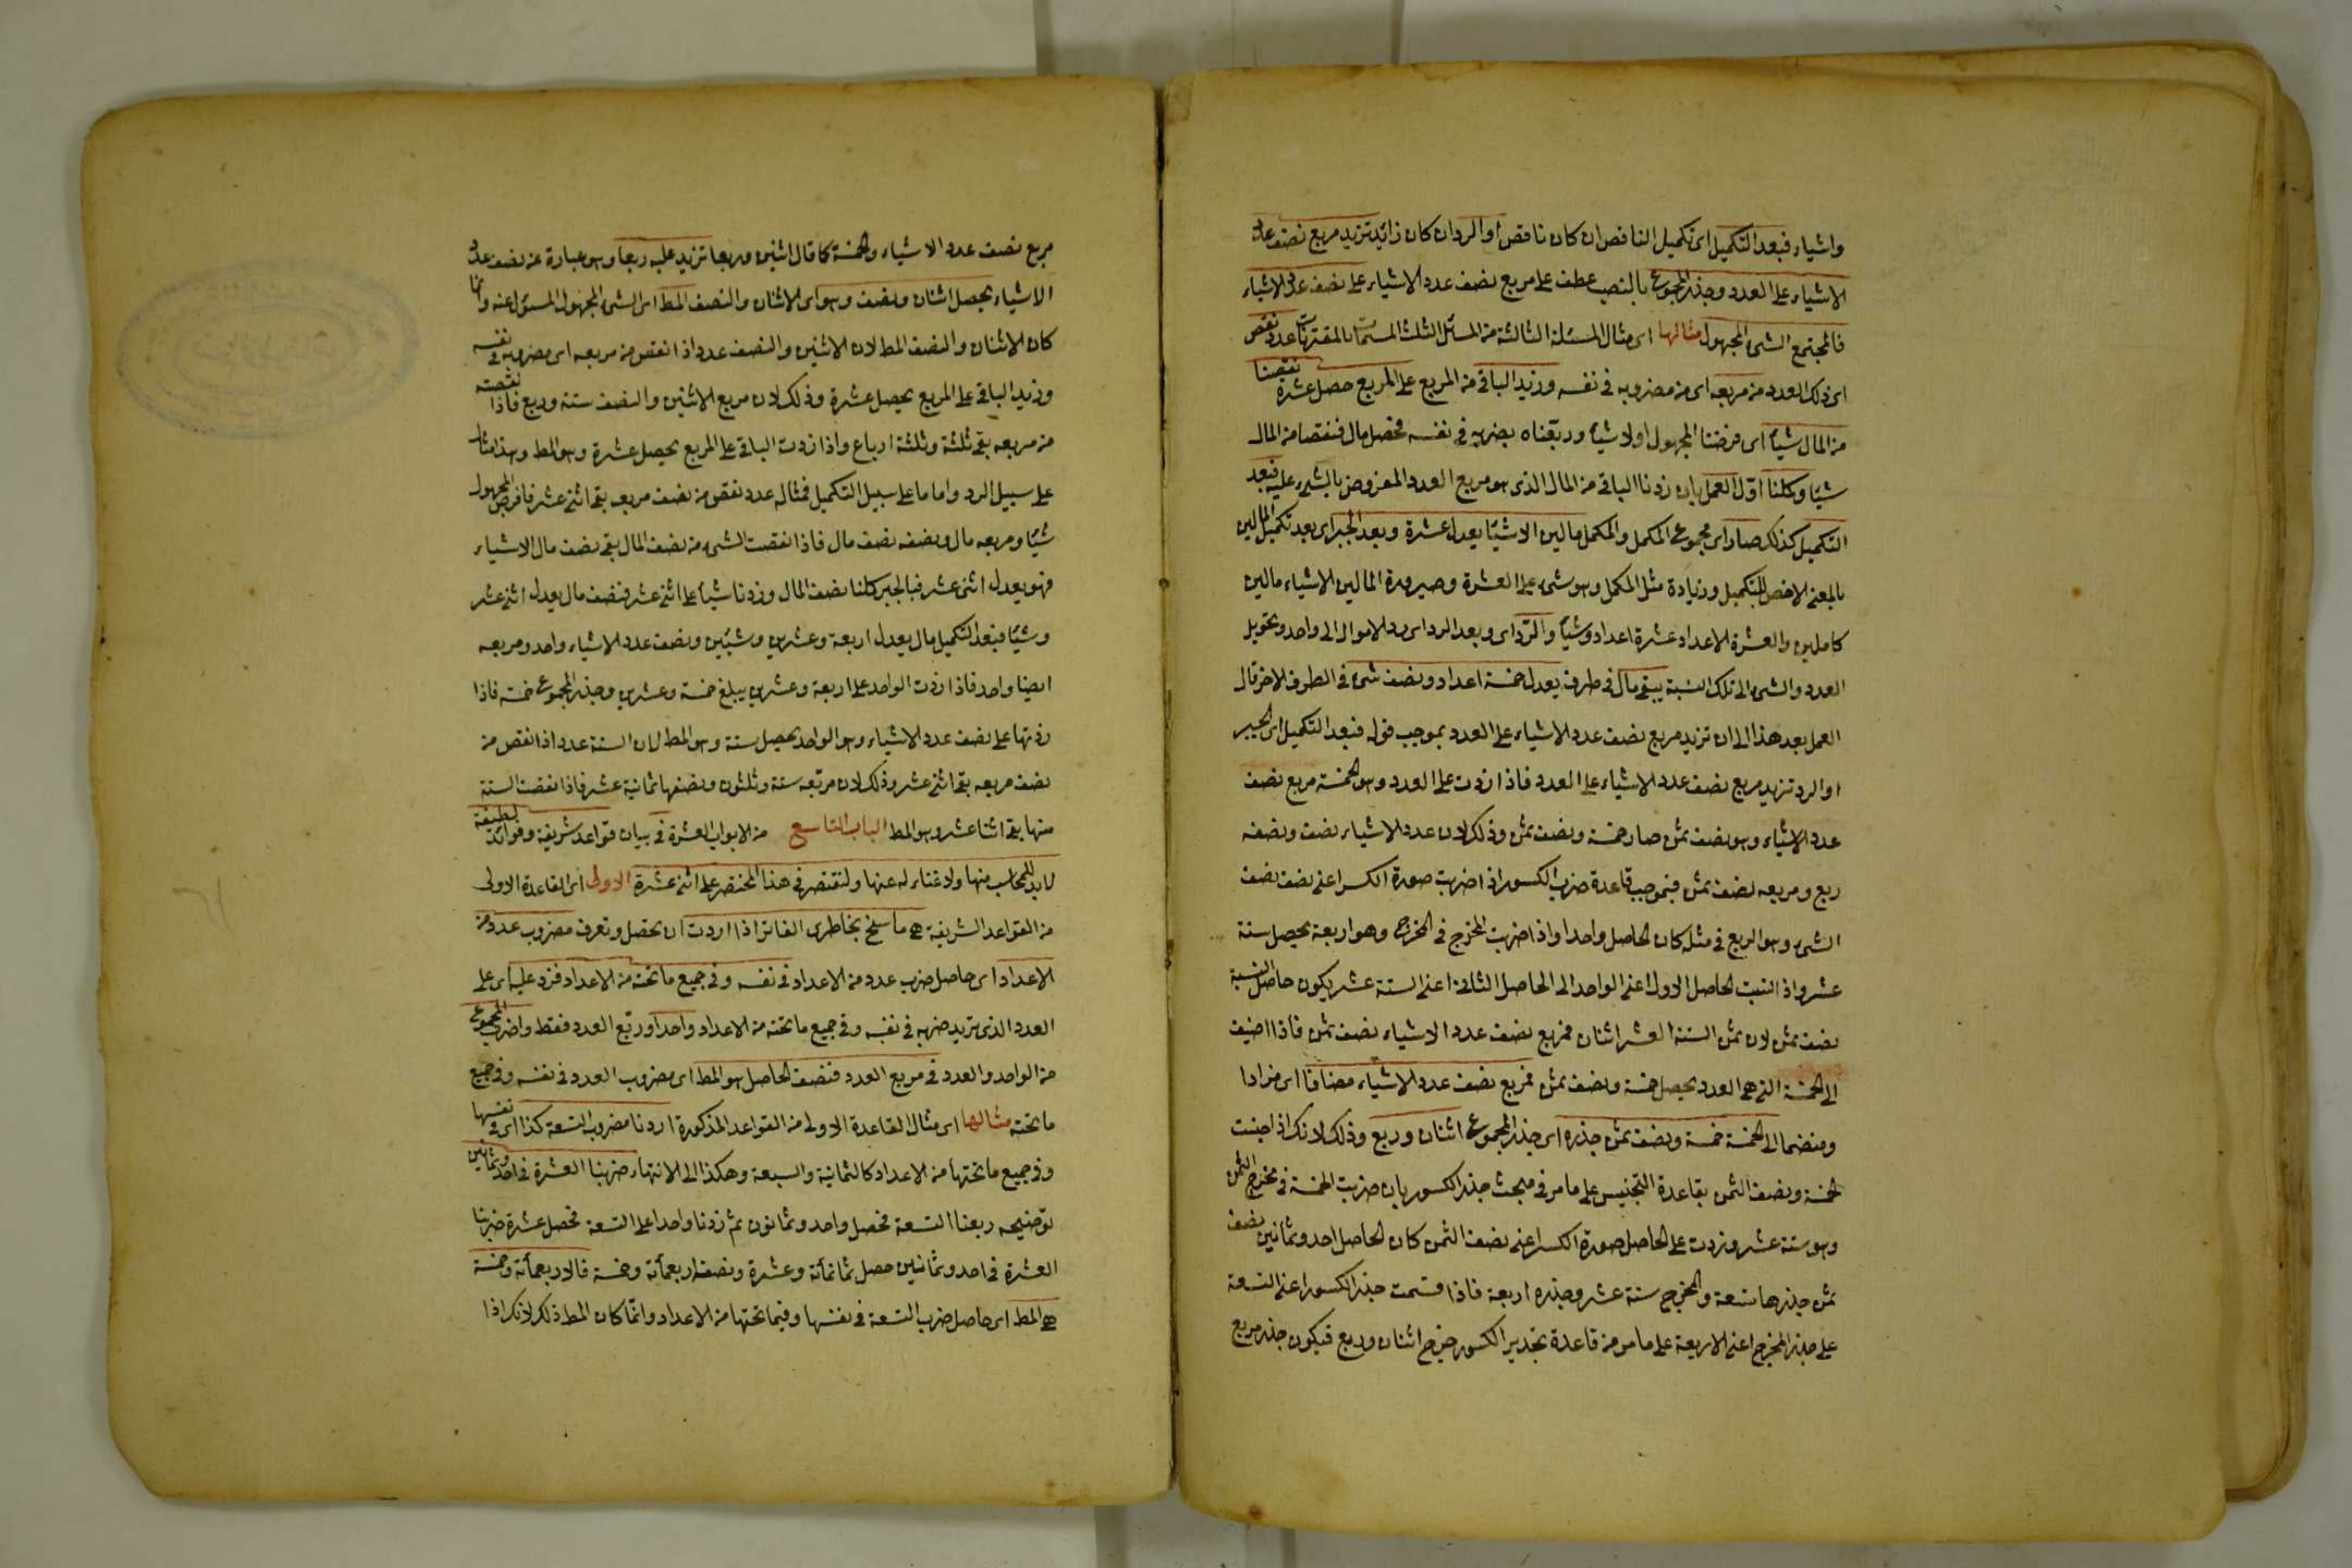 واشياء فبعد التكميل اى تكميل الناقص ان كان ناقص او الرد ان كان زائد تزيد مربع نصف عدد
الاشياء على العدد وجذر المجموع بالنصب عطف على مربع نصف عدد الاشياء على نصف عدد الاشياء
فالمجتمع الشئ المجهول مثالها اى مثال المسئلة الثالثة من المسائل الثلث المسمات بالمقترنات عدد نقص
اى ذلك العدد من مربعه اى من مضروبه فى نفسه وزيد الباقى من المربع على المربع حصل عشرة نقصنا
من المال شيئا اى فرضنا المجهول اولا شيئا وربعناه بضربه فى نفسه فحصل مال فنقصنا من المال
شيئا وكملنا اول العمل بان زدنا الباقى من المال الذى هو مربع العدد المفروض بالشئ عليه فبعد
التكميل كذلك صار اى مجموع المكمل والمكمل مالين الا شيئا يعدل عشرة وبعد الجبر اى بعد تكميل المالين
بالمعنى الاخص للتكميل وزيادة مثل المكمل وهو شئ على العشرة وصيرورة المالين الا شياء مالين
كاملين والعشرة الاعداد عشرة اعداد وشيئا والرد اى وبعد الرد اى رد الاموال الى واحد وتحويل
العدد والشئ الى تلك النسبة يبقى مال فى طرف يعدل خمسة اعداد ونصف شئ فى الطرف الاخر قال
العمل بعد هذا الى ان تزيد مربع نصف عدد الاشياء على العدد بموجب قوله فبعد التكميل اى الجبر
او الرد تزيد مربع نصف عدد الاشياء على العدد فاذا زدت على العدد وهو الخمسة مربع نصف
عدد الاشياء وهو نصف ثمن صار خمسة ونصف ثمن وذلك لان عدد الاشياء نصف ونصفه
ربع ومربعه نصف ثمن فبموجب قاعدة ضرب الكسور اذا ضربت صورة الكسر اعنى نصف نصف
الشئ وهو الربع فى مثله كان الحاصل واحدا واذا ضربت المخرج فى المخرج وهو اربعة يحصل ستة
عشر واذا انتسبت الحاصل الاول اعنى الواحد الى الحاصل الثانى اعنى الستة عشر يكون حاصل النسبة
نصف ثمن لان ثمن الستة العشر اثنان فمربع نصف عدد الاشياء نصف ثمن فاذا اضيف
الى الخمسة التى هى العدد يحصل خمسة ونصف ثمن فمربع نصف عدد الاشياء مضافا اى مزادا
ومنضما الى الخمسة خمسة ونصف ثمن جذره اى جذر المجموع اثنان وربع وذلك لانك اذا جنست
الخمسة ونصف الثمن بقاعدة التجنيس على ما مر فى مبحث جذر الكسور بان ضربت الخمسة فى مخرج نصف الثمن
وهو ستة عشر وزدت على الحاصل صورة الكسر اعنى نصف الثمن كان الحاصل احد وثمانين نصف
ثمن جذرها تسعة والمخرج ستة عشر وجذره اربعة فاذا قسمت جذر الكسور اعنى التسعة
على جذر المخرج اعنى الاربعة على ما مر من قاعدة تجذير الكسور خرج اثنان وربع فيكون جذر مربع
مربع نصف عدد الاشياء والخمسة كما قال اثنين وربعا تزيد عليه ربعا وهو عبارة عن نصف عدد
الاشياء يحصل اثنان ونصف وهو اى الاثنان والنصف المط اى الشئ المجهول المسئول عنه وانما
كان الاثنان والنصف المط لان الاثنين والنصف عدد اذا نقص من مربعه اى مضروبه فى نفسه
وزيد الباقى على المربع يحصل عشرة وذلك لان مربع الاثنين والنصف ستة وربع فاذا نقصته
من مربعه بقى ثلثة وثلثة ارباع واذا زدت الباقى على المربع يحصل عشرة وهو المط وهذا مثال
على سبيل الرد واما ما على سبيل التكميل فمثاله عدد نقص من نصف مربعه بقى اثنى عشر فافرض المجهول
شيئا ومربعه مال ونصفه نصف مال فاذا نقصت الشئ من نصف المال بقى نصف مال الا شياء
فهو يعدل اثنى عشر فبالجبر كملنا نصف المال وزدنا شيئا على اثنى عشر فنصف مال يعدل اثنى عشر
وشيئا فبعد التكميل مال يعدل اربعة وعشرين وشيئين ونصف عدد الاشياء واحد ومربعه
ايضا واحد فاذا زدت الواحد على اربعة وعشرين يبلغ خمسة وعشرين وجذر المجموع خمسة فاذا
زدتها على نصف عدد الاشياء وهو الواحد يحصل ستة وهو المط لان الستة عدد اذا نقص من
نصف مربعه بقى اثنى عشر وذلك لان مربعه ستة وثلثون ونصفها ثمانية عشر فاذا نقصت الستة
منها بقى اثنا عشر وهو المط الباب التاسع من الابواب العشرة فى بيان قواعد شريفة وفوائد لطيفة
لا بد للمحاسب منها ولا غناء له عنها ولنقتصر فى هذا المختصر على اثنى عشرة الاولى اى القاعدة الاولى
من القواعد الشريفة هى ما سنح بخاطرى الفاتر اذا اردت ان تحصل وتعرف مضروب عدد من
الاعداد اى حاصل ضرب عدد من الاعداد فى نفسه وفى جميع ما تحته من الاعداد فزد عليه اى على
العدد الذى تريد ضربه فى نفسه وفى جميع ما تحته من الاعداد واحدا وربع العدد فقط واضرب المجموع
من الواحد والعدد فى مربع العدد فنصف الحاصل هو المط اى مضروب العدد فى نفسه وفى جميع
ما تحته مثالها اى مثال القاعدة الاولى من القواعد المذكورة اردنا مضروب التسعة كذا اى فى نفسها
وفى جميع ما تحتها من الاعداد كالثمانية والسبعة وهكذا الى الانتهاء ضربنا العشرة فى احد وثمانين
توضيحه ربعنا التسعة فحصل واحد وثمانون ثم زدنا واحدا على التسعة فحصل عشرة ضربنا
العشرة فى احد وثمانين حصل ثمانمائة وعشرة ونصفه اربعمأة وخمسة فالاربعمأة وخمسة
هى المط اى حاصل ضرب التسعة فى نفسها وفيما تحتها من الاعداد وانما كان المط ذلك لانك اذا